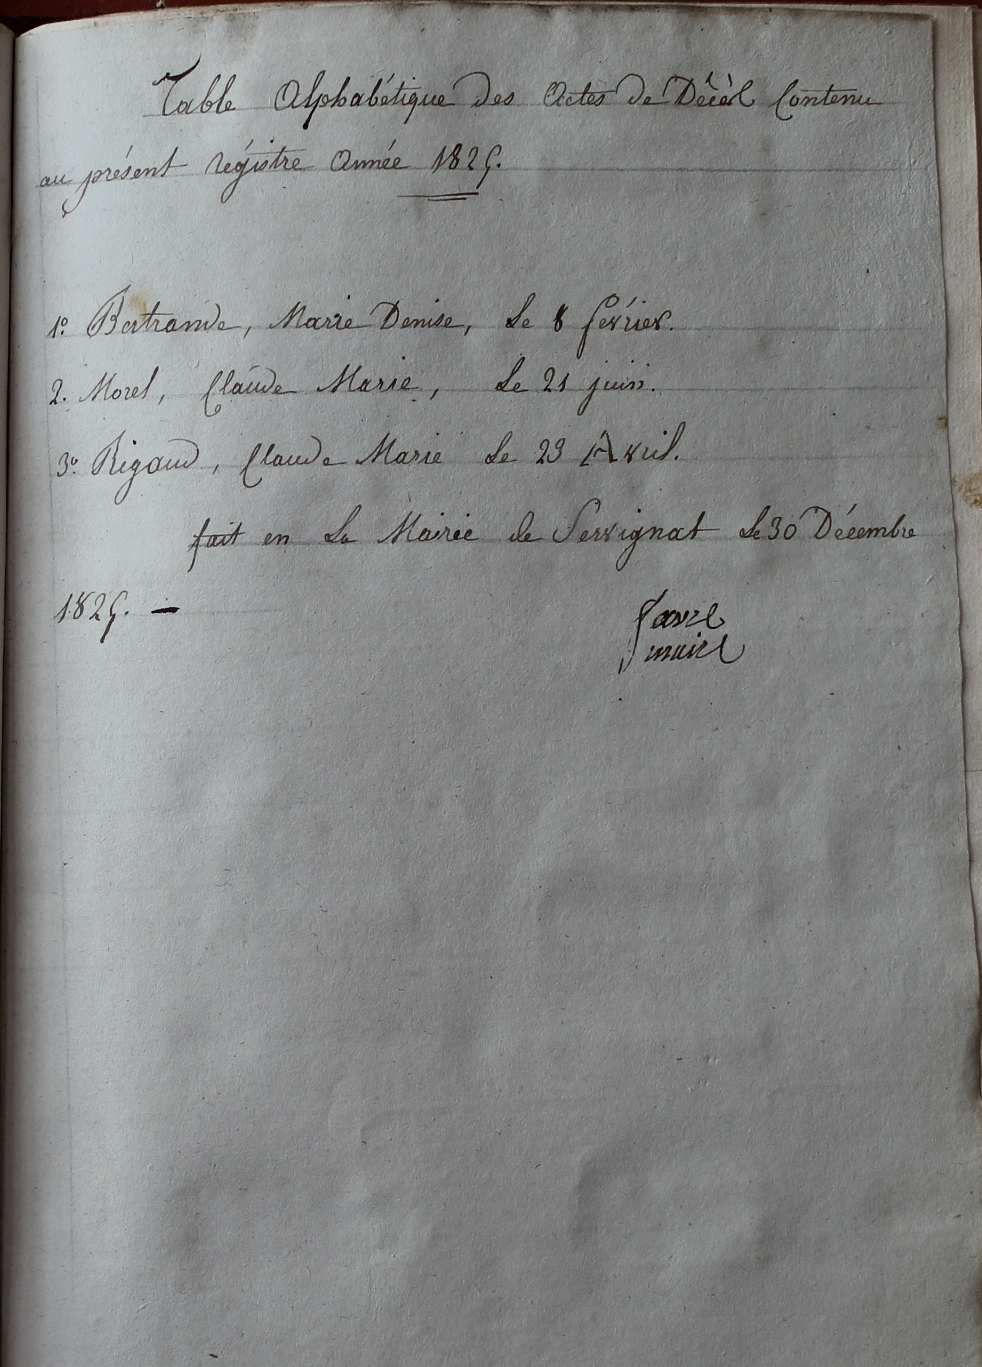 Table Alphabétique des Actes de Décès Contenu
au présent régistre Année 1825.
1.° Bertrande, Marie Denise, Le 8 février.
2. Morel, Claude Marie, Le 21 juin.
3.° Rigaud, Claude Marie Le 23 Avril.
fait en La Mairie de Servignat Le 30 Décembre
1825. —
favre
maire